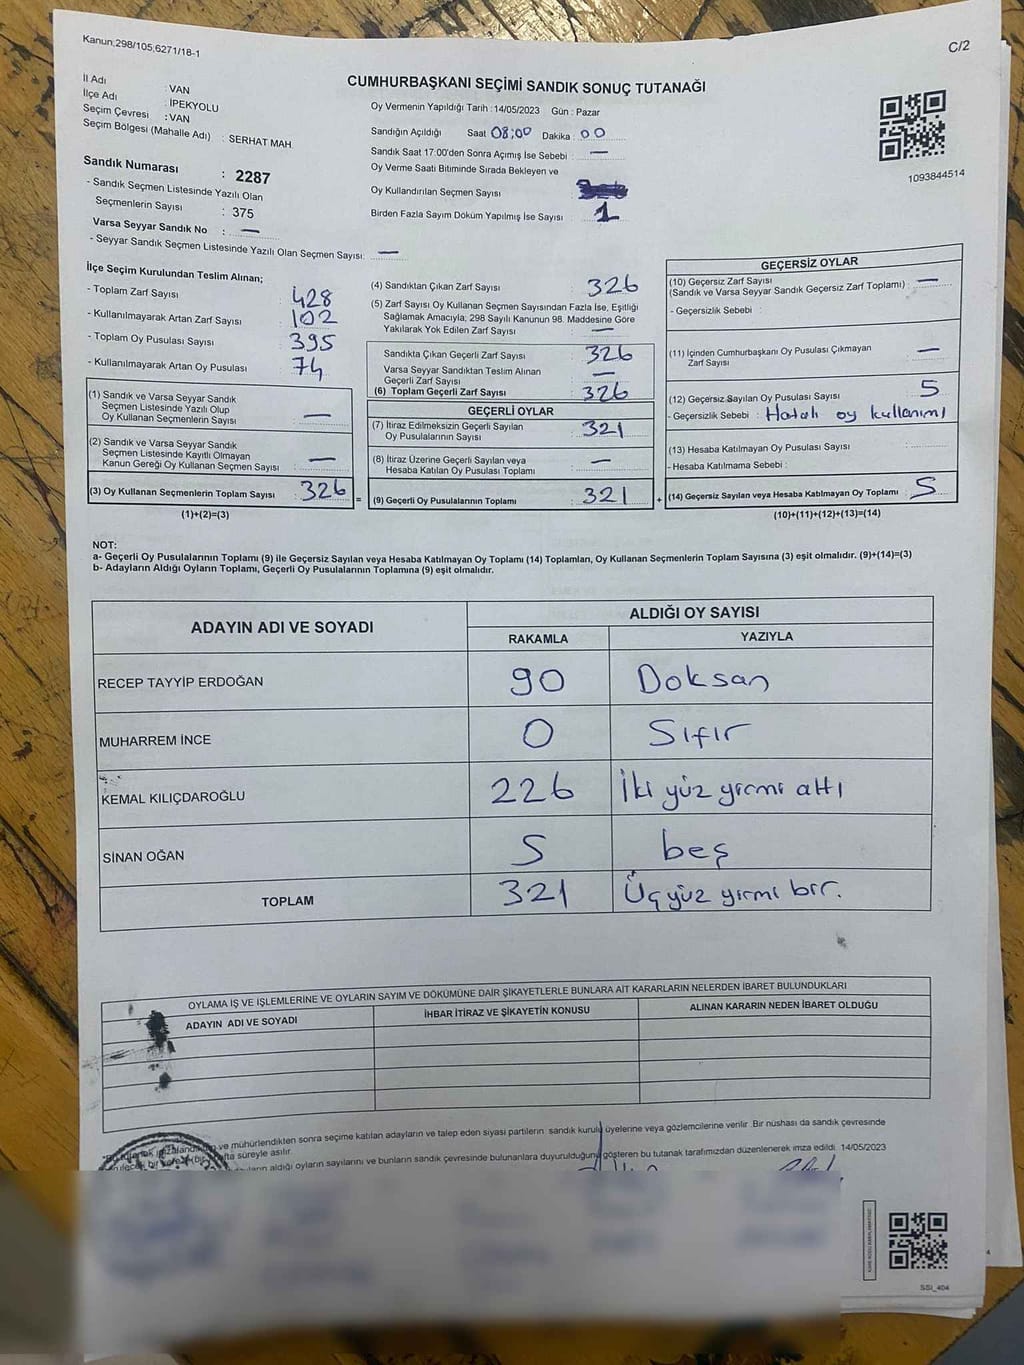 Kanun;298/105;6271/18-1
C/2
CUMHURBAŞKANI SEÇİMİ SANDIK SONUÇ TUTANAĞI
İl Adı : VAN
İlçe Adı : İPEKYOLU
Seçim Çevresi : VAN
Seçim Bölgesi (Mahalle Adı) : SERHAT MAH
Sandık Numarası : 2287
- Sandık Seçmen Listesinde Yazılı Olan
Seçmenlerin Sayısı : 375
Varsa Seyyar Sandık No : —
- Seyyar Sandık Seçmen Listesinde Yazılı Olan Seçmen Sayısı: —
Oy Vermenin Yapıldığı Tarih : 14/05/2023 Gün : Pazar
Sandığın Açıldığı Saat 08:00 Dakika : 00
Sandık Saat 17:00'den Sonra Açımış İse Sebebi : —
Oy Verme Saati Bitiminde Sırada Bekleyen ve
Oy Kullandırılan Seçmen Sayısı
Birden Fazla Sayım Döküm Yapılmış İse Sayısı : 1
1093844514
İlçe Seçim Kurulundan Teslim Alınan;
- Toplam Zarf Sayısı : 428
- Kullanılmayarak Artan Zarf Sayısı : 102
- Toplam Oy Pusulası Sayısı : 395
- Kullanılmayarak Artan Oy Pusulası : 74
(1) Sandık ve Varsa Seyyar Sandık
Seçmen Listesinde Yazılı Olup
Oy Kullanan Seçmenlerin Sayısı : —
(2) Sandık ve Varsa Seyyar Sandık
Seçmen Listesinde Kayıtlı Olmayan
Kanun Gereği Oy Kullanan Seçmen Sayısı : —
(3) Oy Kullanan Seçmenlerin Toplam Sayısı : 326 =
(1)+(2)=(3)
(4) Sandıktan Çıkan Zarf Sayısı : 326
(5) Zarf Sayısı Oy Kullanan Seçmen Sayısından Fazla İse, Eşitliği
Sağlamak Amacıyla; 298 Sayılı Kanunun 98. Maddesine Göre
Yakılarak Yok Edilen Zarf Sayısı : —
Sandıkta Çıkan Geçerli Zarf Sayısı : 326
Varsa Seyyar Sandıktan Teslim Alınan
Geçerli Zarf Sayısı : —
(6) Toplam Geçerli Zarf Sayısı : 326
GEÇERLİ OYLAR
(7) İtiraz Edilmeksizin Geçerli Sayılan
Oy Pusulalarının Sayısı : 321
(8) İtiraz Üzerine Geçerli Sayılan veya
Hesaba Katılan Oy Pusulası Toplamı : —
(9) Geçerli Oy Pusulalarının Toplamı : 321 +
GEÇERSİZ OYLAR
(10) Geçersiz Zarf Sayısı
(Sandık ve Varsa Seyyar Sandık Geçersiz Zarf Toplamı) : —
- Geçersizlik Sebebi :
(11) İçinden Cumhurbaşkanı Oy Pusulası Çıkmayan
Zarf Sayısı : —
(12) Geçersiz Sayılan Oy Pusulası Sayısı : 5
- Geçersizlik Sebebi : Hatalı oy kullanımı
(13) Hesaba Katılmayan Oy Pusulası Sayısı
- Hesaba Katılmama Sebebi :
(14) Geçersiz Sayılan veya Hesaba Katılmayan Oy Toplamı : 5
(10)+(11)+(12)+(13)=(14)
NOT:
a- Geçerli Oy Pusulalarının Toplamı (9) ile Geçersiz Sayılan veya Hesaba Katılmayan Oy Toplamı (14) Toplamları, Oy Kullanan Seçmenlerin Toplam Sayısına (3) eşit olmalıdır. (9)+(14)=(3)
b- Adayların Aldığı Oyların Toplamı, Geçerli Oy Pusulalarının Toplamına (9) eşit olmalıdır.
ADAYIN ADI VE SOYADI ALDIĞI OY SAYISI
RAKAMLA YAZIYLA
RECEP TAYYİP ERDOĞAN 90 Doksan
MUHARREM İNCE 0 Sıfır
KEMAL KILIÇDAROĞLU 226 İki yüz yirmi altı
SİNAN OĞAN 5 beş
TOPLAM 321 Üç yüz yirmi bir.
OYLAMA İŞ VE İŞLEMLERİNE VE OYLARIN SAYIM VE DÖKÜMÜNE DAİR ŞİKAYETLERLE BUNLARA AİT KARARLARIN NELERDEN İBARET BULUNDUKLARI
ADAYIN ADI VE SOYADI İHBAR İTİRAZ VE ŞİKAYETİN KONUSU ALINAN KARARIN NEDEN İBARET OLDUĞU
ve mühürlendikten sonra seçime katılan adayların ve talep eden siyasi partilerin sandık kurulu üyelerine veya gözlemcilerine verilir .Bir nüshası da sandık çevresinde
hafta süreyle asılır.
aldığı oyların sayılarını ve bunların sandık çevresinde bulunanlara duyurulduğunu gösteren bu tutanak tarafımızdan düzenlenerek imza edildi. 14/05/2023
SSI_404